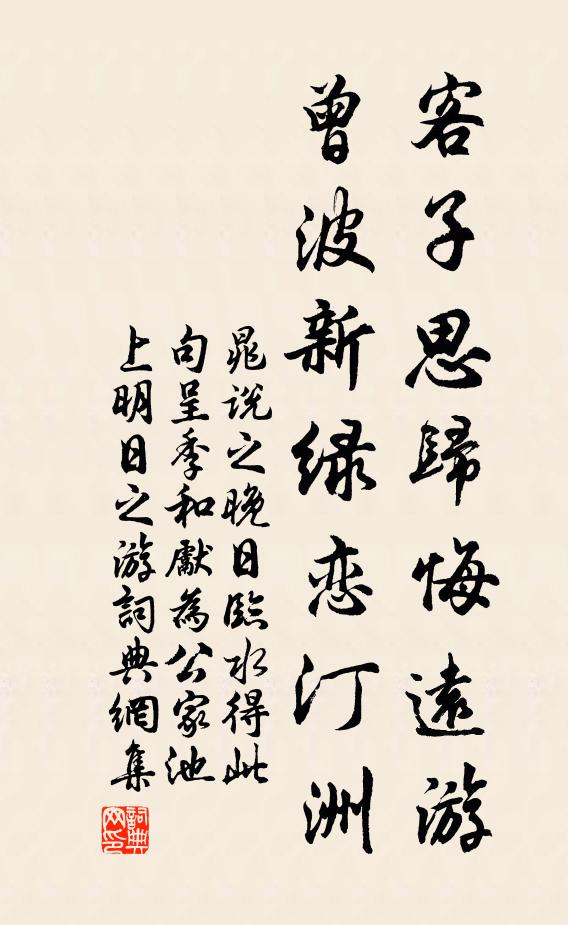 客子思歸悔遠游
曾波新绿恋汀洲
晁说之晚日臨水得此
句呈季和獻為公家池
上明日之游詞典網集
詞典
网印